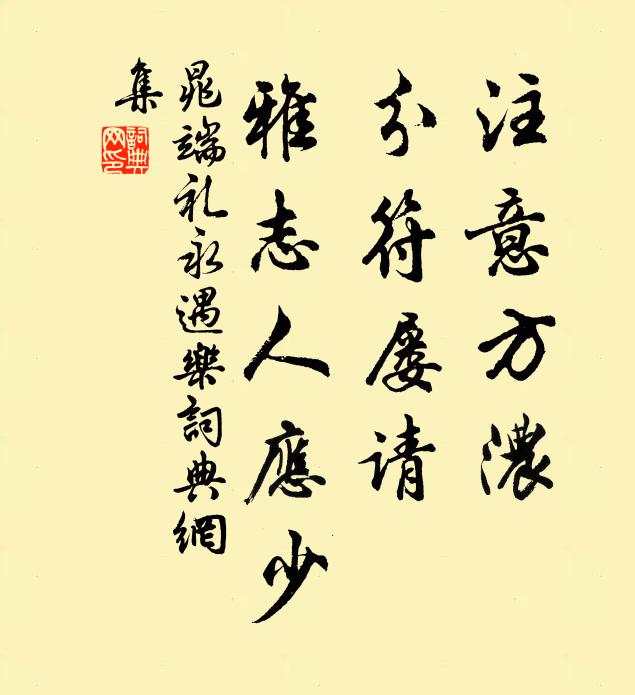 注意方濃
分符屡请
雅志人應少
晁端礼永遇樂詞典網
集
詞典
网印